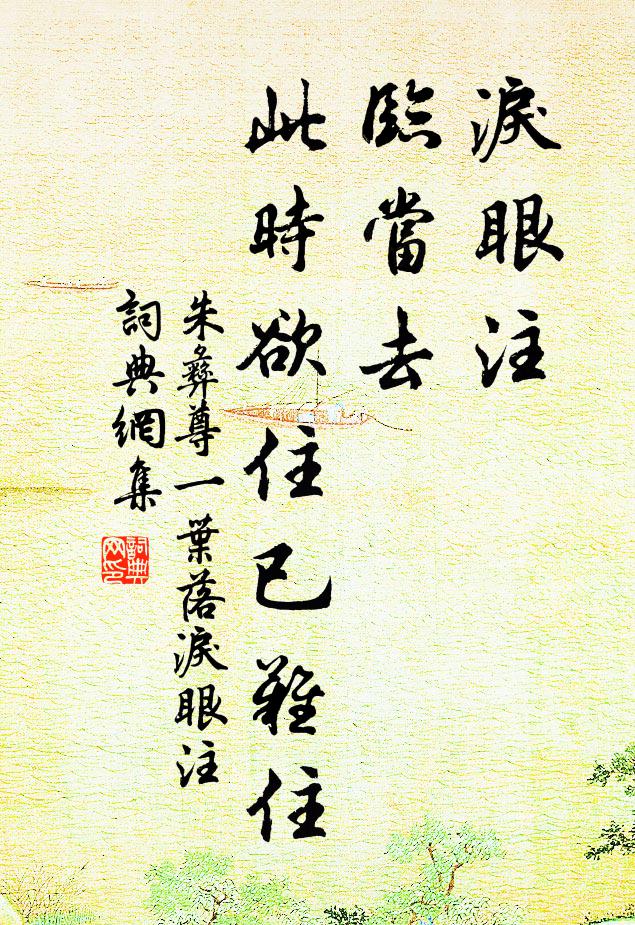 淚眼注
臨當去
此時欲住已難住
朱彝尊一葉落淚眼注
詞典網集
詞典網印